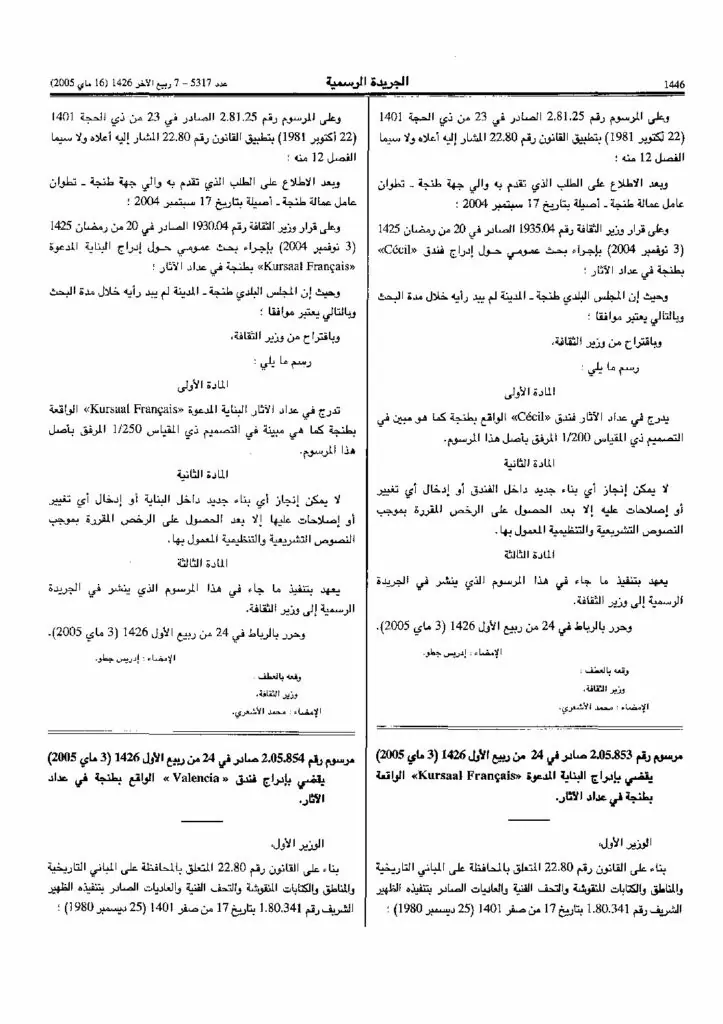 1446
الجريدة الرسمية
عدد 5317 - 7 ربيع الآخر 1426 (16 ماي 2005)
وعلى المرسوم رقم 2.81.25 الصادر في 23 من ذي الحجة 1401
(22 أكتوبر 1981) بتطبيق القانون رقم 22.80 المشار إليه أعلاه ولا سيما
الفصل 12 منه ؛
وبعد الاطلاع على الطلب الذي تقدم به والي جهة طنجة ـ تطوان
عامل عمالة طنجة ـ أصيلة بتاريخ 17 سبتمبر 2004 ؛
وعلى قرار وزير الثقافة رقم 1935.04 الصادر في 20 من رمضان 1425
(3 نوفمبر 2004) بإجراء بحث عمومي حول إدراج فندق «Cécil»
بطنجة في عداد الآثار ؛
وحيث إن المجلس البلدي طنجة ـ المدينة لم يبد رأيه خلال مدة البحث
وبالتالي يعتبر موافقا ؛
وباقتراح من وزير الثقافة،
رسم ما يلي :
المادة الأولى
يدرج في عداد الآثار فندق «Cécil» الواقع بطنجة كما هو مبين في
التصميم ذي المقياس 1/200 المرفق بأصل هذا المرسوم.
المادة الثانية
لا يمكن إنجاز أي بناء جديد داخل الفندق أو إدخال أي تغيير
أو إصلاحات عليه إلا بعد الحصول على الرخص المقررة بموجب
النصوص التشريعية والتنظيمية المعمول بها.
المادة الثالثة
يعهد بتنفيذ ما جاء في هذا المرسوم الذي ينشر في الجريدة
الرسمية إلى وزير الثقافة.
وحرر بالرباط في 24 من ربيع الأول 1426 (3 ماي 2005).
الإمضاء : إدريس جطو.
وقعه بالعطف :
وزير الثقافة،
الإمضاء : محمد الأشعري.
مرسوم رقم 2.05.853 صادر في 24 من ربيع الأول 1426 (3 ماي 2005)
يقضي بإدراج البناية المدعوة «Kursaal Français» الواقعة
بطنجة في عداد الآثار.
الوزير الأول،
بناء على القانون رقم 22.80 المتعلق بالمحافظة على المباني التاريخية
والمناظر والكتابات المنقوشة والتحف الفنية والعاديات الصادر بتنفيذه الظهير
الشريف رقم 1.80.341 بتاريخ 17 من صفر 1401 (25 ديسمبر 1980) ؛
وعلى المرسوم رقم 2.81.25 الصادر في 23 من ذي الحجة 1401
(22 أكتوبر 1981) بتطبيق القانون رقم 22.80 المشار إليه أعلاه ولا سيما
الفصل 12 منه ؛
وبعد الاطلاع على الطلب الذي تقدم به والي جهة طنجة ـ تطوان
عامل عمالة طنجة ـ أصيلة بتاريخ 17 سبتمبر 2004 ؛
وعلى قرار وزير الثقافة رقم 1930.04 الصادر في 20 من رمضان 1425
(3 نوفمبر 2004) بإجراء بحث عمومي حول إدراج البناية المدعوة
«Kursaal Français» بطنجة في عداد الآثار ؛
وحيث إن المجلس البلدي طنجة ـ المدينة لم يبد رأيه خلال مدة البحث
وبالتالي يعتبر موافقا ؛
وباقتراح من وزير الثقافة،
رسم ما يلي :
المادة الأولى
تدرج في عداد الآثار البناية المدعوة «Kursaal Français» الواقعة
بطنجة كما هي مبينة في التصميم ذي المقياس 1/250 المرفق بأصل
هذا المرسوم.
المادة الثانية
لا يمكن إنجاز أي بناء جديد داخل البناية أو إدخال أي تغيير
أو إصلاحات عليها إلا بعد الحصول على الرخص المقررة بموجب
النصوص التشريعية والتنظيمية المعمول بها.
المادة الثالثة
يعهد بتنفيذ ما جاء في هذا المرسوم الذي ينشر في الجريدة
الرسمية إلى وزير الثقافة.
وحرر بالرباط في 24 من ربيع الأول 1426 (3 ماي 2005).
الإمضاء : إدريس جطو.
وقعه بالعطف :
وزير الثقافة،
الإمضاء : محمد الأشعري.
مرسوم رقم 2.05.854 صادر في 24 من ربيع الأول 1426 (3 ماي 2005)
يقضي بإدراج فندق « Valencia » الواقع بطنجة في عداد
الآثار.
الوزير الأول،
بناء على القانون رقم 22.80 المتعلق بالمحافظة على المباني التاريخية
والمناطق والكتابات المنقوشة والتحف الفنية والعاديات الصادر بتنفيذه الظهير
الشريف رقم 1.80.341 بتاريخ 17 من صفر 1401 (25 ديسمبر 1980) ؛